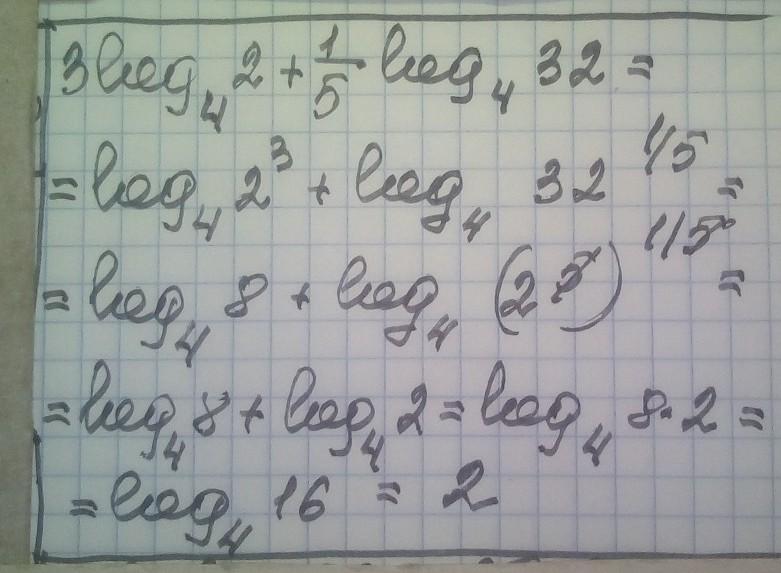 3log₄ 2 + 1/5 log₄ 32 =
= log₄ 2³ + log₄ 32^1/5 =
= log₄ 8 + log₄ (2⁵)^1/5 =
= log₄ 8 + log₄ 2 = log₄ 8·2 =
= log₄ 16 = 2